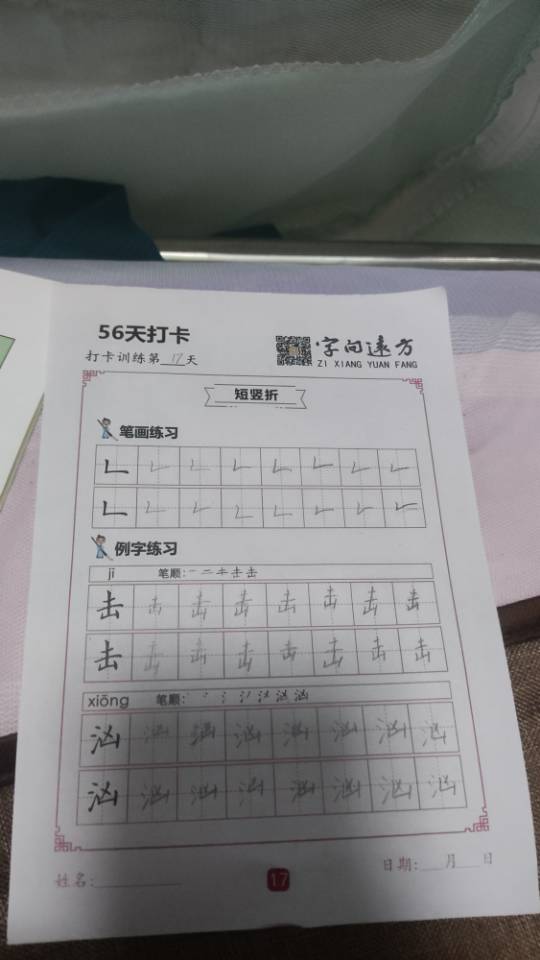 56天打卡
打卡训练第 17 天
字向遠方
ZI XIANG YUAN FANG
短竖折
笔画练习
例字练习
jī 笔顺:一二キ击击
击 击 击 击 击 击 击 击
击 击 击 击 击 击 击 击
xiōng 笔顺:
汹 汹 汹 汹 汹 汹 汹 汹
汹 汹 汹 汹 汹 汹 汹 汹
姓名:
17
日期: 月 日